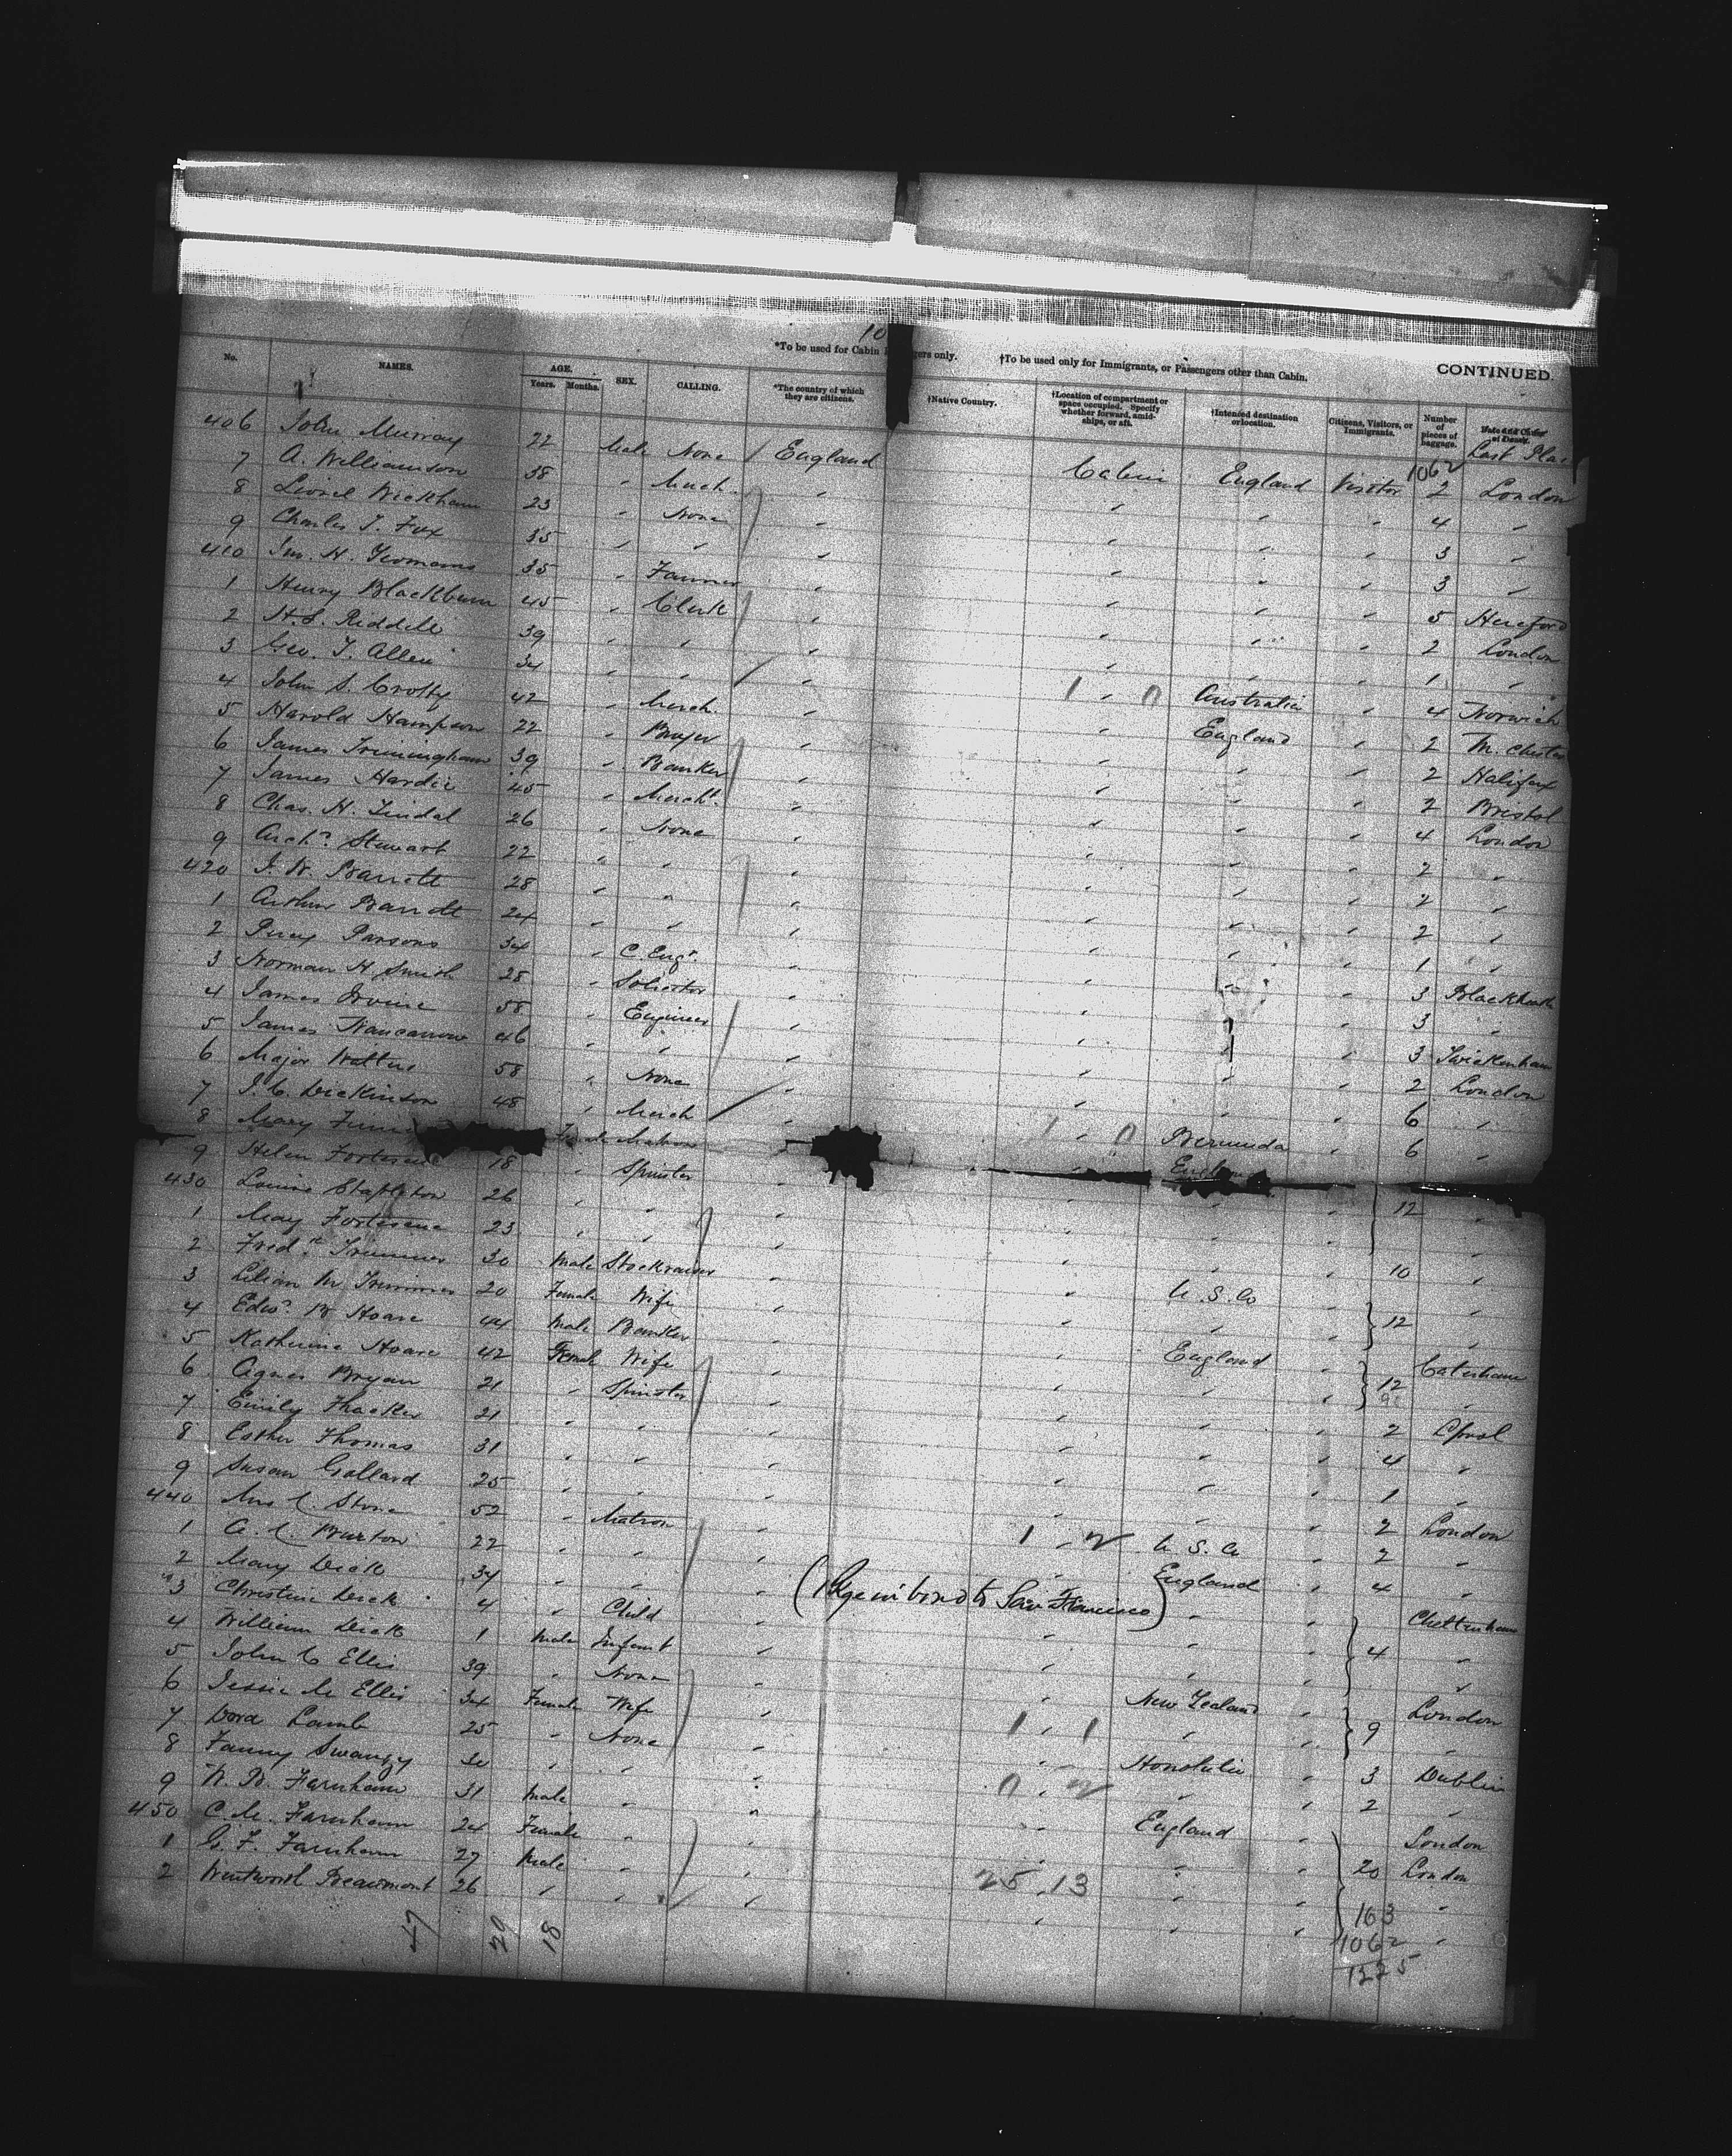 10
*To be used for Cabin gers only. †To be used only for Immigrants, or Passengers other than Cabin. CONTINUED.
No. NAMES. AGE. Years. Months. SEX. CALLING. *The country of which they are citizens. †Native Country. †Location of compartment or space occupied. Specify whether forward, amid-ships, or aft. †Intended destination or location. Citizens, Visitors, or Immigrants. Number of pieces of baggage. Last Plac
1062
406 John Murray 22 Male None England Cabin England Visitor 2 London
7 A. Williamson 38 " Merch. " " " " 4 "
8 Lionel Wickham 23 " None " " " " 3 "
9 Charles J. Fox 35 " " " " " " 3 "
410 Jno. H. Yeomans 35 " Farmer " " " " 5 Hereford
1 Henry Blackburn 45 " Clerk " " " " 2 London
2 H. S. Riddell 39 " " " " " " 1 "
3 Geo. T. Allen 34 " " " 1 " 0 Australia " 4 Norwich
4 John S. Crofty 42 " Merch. " " England " 2 M. chester
5 Harold Hampson 22 " Buyer " " " 2 Halifax
6 James 39 " Banker " " " " 2 Bristol
7 James Hardie 45 " Mercht. " " " " 4 London
8 Chas. H. Lindal 26 " None " " " " 2 "
9 Archd. Stewart 22 " " " " " " 2 "
420 J. W. Barrett 28 " " " " " " 2 "
1 Arthur Barrett 24 " " " " " " 1 "
2 Percy Parsons 34 " C. Engr. " " " " 3 Blackheath
3 Norman H Smith 28 " Solicitor " " " " 3 "
4 James Irvine 58 " Engineer " " " " 3 Twickenham
5 James Nancarrow 46 " " " " " " 2 London
6 Major 58 " None " " " " 6 "
7 J. C. Dickinson 48 " Merch " 1 " 0 Bermuda " 6 "
8 Mary Matron "
9 Helen Fortescue 18 " Spinster " " " " 12 "
430 Louise Stapleton 26 " " " " " " "
1 May Fortescue 23 " " " " " " 10 "
2 Fredk. Trimmer 30 Male Stockraiser " " U. S. A " "
3 Lilian M Trimmer 20 Female Wife " " " " 12 "
4 Edwd. B Hoare 44 Male Banker " England " Caterham
5 Katherine Hoare 42 Female Wife " " " " 12 "
6 Agnes Bryan 21 " Spinster " " " " 2 Lpool
7 Emily Thacker 21 " " " " " " 4 "
8 Esther Thomas 31 " " " " " " 1 "
9 Susan Gollard 25 " " " " " " 2 London
440 Mrs C. Stone 52 " Matron " 1 " 2 U. S. A " 2 "
1 A. C. Burton 22 " " " England " 4 "
2 Mary Dick 34 " " " " " Cheltenham
3 Christine Dick 4 " Child " " " " 4 "
4 William Dick 1 Male Infant " " " " "
5 John C Ellis 39 " None " " New Zealand " London
6 Jessie M Ellis 34 Female Wife " 1 " 1 " " 9 "
7 Dora Lamb 25 " None " " Honolulu " 3 Dublin
8 Fanny Swanzy " " " 0 " 2 " " 2 "
9 W. B. Farnham 31 Male " " " England " London
450 C. M. Farnham 24 Female " " " " " 20 London
1 G. F. Farnham 27 Male " " " " " "
2 Wentworth Beaumont 26 " " " " " " "
to San Francisco)
25 . 13
47 29 18
163
1062
1225